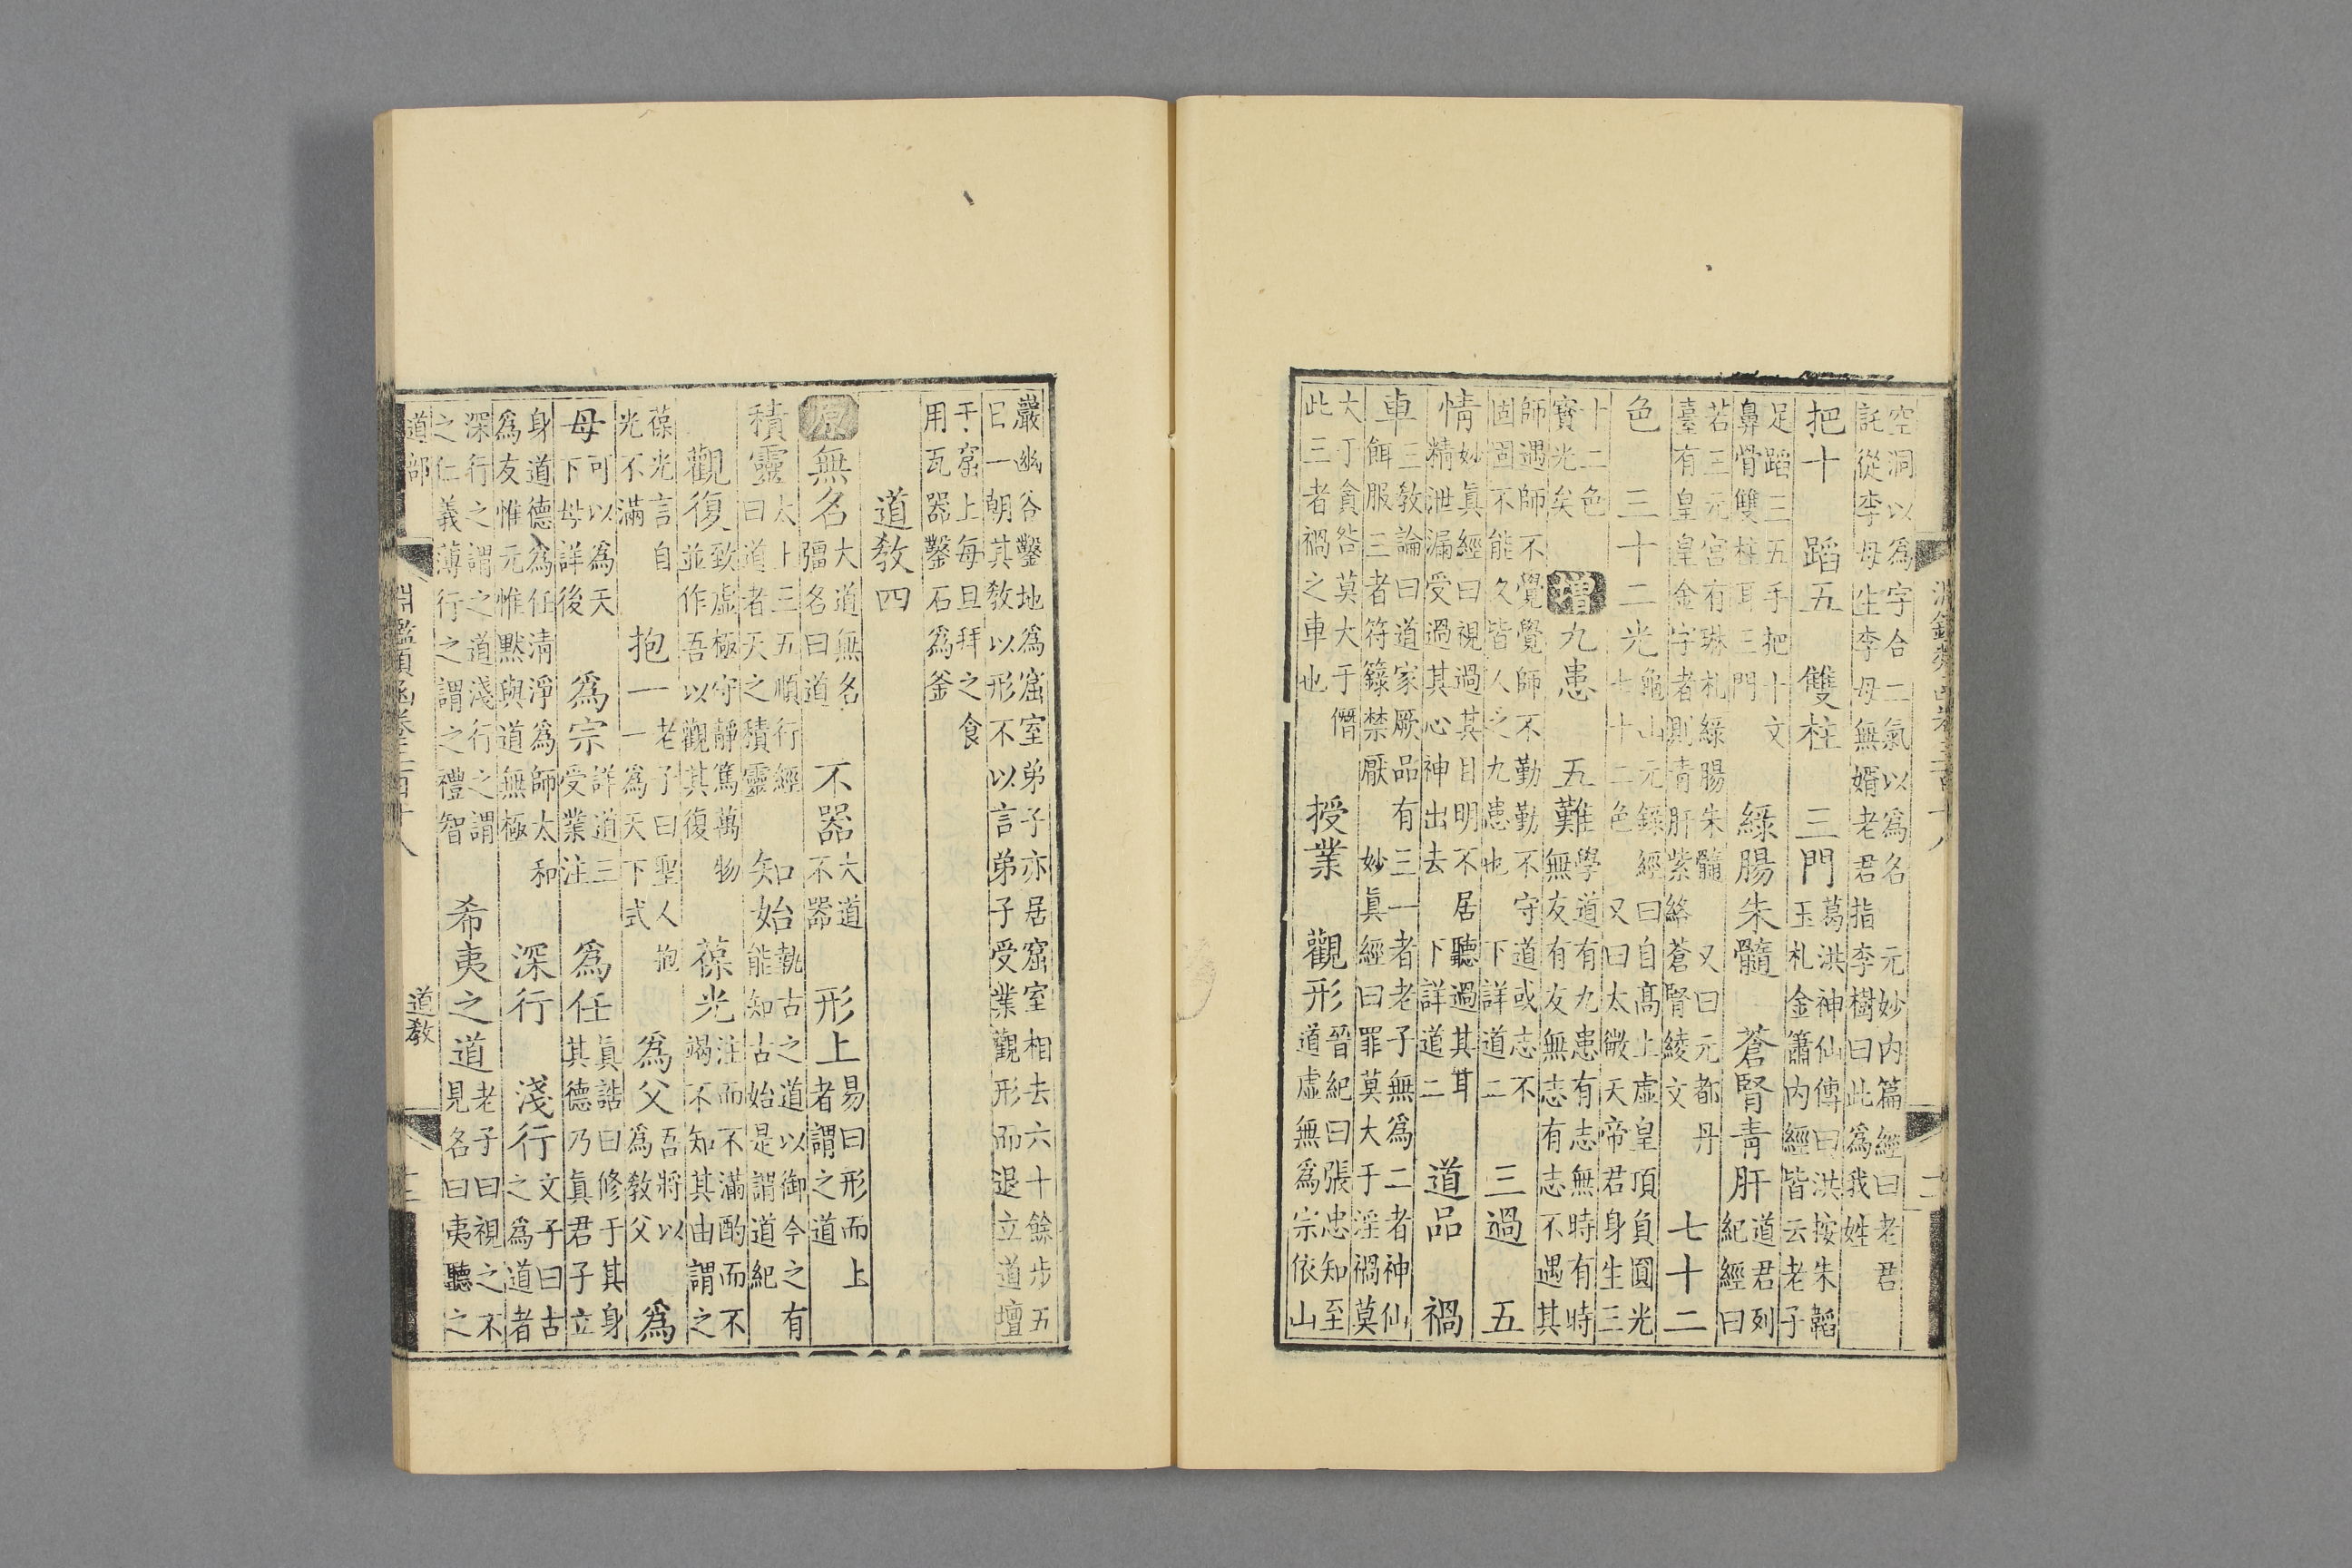 空洞以爲字合二氣以爲名　元妙内篇經曰老君
託從李母生李母無婿老君指李樹曰此爲我姓
把十　蹈五　雙柱　三門葛洪神仙傳曰洪按朱韜
玉札金簫内經皆云老子
足蹈三五手把十文
鼻骨雙柱耳三門　綠腸朱髓　蒼腎青肝道君列
紀經曰
若三元宮有琳札綠腸朱髓　又曰元都丹
臺有皇皇金字者則青肝紫絡蒼腎綾文　七十二
色　三十二光龜山元籙經曰自髙上虛皇項負圓光
七十二色　又曰太微天帝君身生三
十二色
寶光矣　增九患　五難學道有九患有志無時有時
無友有友無志有志不遇其
師遇師不覺覺師不勤勤不守道或志不
固固不能久皆人之九患也　下詳道二　三過　五
情妙眞經曰視過其目明不居聽過其耳
精泄漏受過其心神出去　下詳道二　道品　禍
車三教論曰道家厥品有三一者老子無爲二者神仙
餌服三者符籙禁厭　妙眞經曰罪莫大于淫禍莫
大丁貪咎莫大于僭
此三者禍之車也　授業　觀形晉紀曰張忠知至
道虛無爲宗依山
巖幽谷鑿地爲窟室弟子亦居窟室相去六十餘步五
日一朝其教以形不以言弟子受業觀形而退立道壇
于窟上每旦拜之食
用瓦器鑿石爲釜
道教四
原無名大道無名
彊名曰道　不器大道
不器　形上易曰形而上
者謂之道
積靈太上三五順行經
曰道者天之積靈　知始執古之道以御今之有
能知古始是謂道紀
觀復致虛極守靜篤萬物
並作吾以觀其復　葆光注而不滿酌而不
竭不知其由謂之
葆光言自
光不滿　抱一老子曰聖人抱
一爲天下式　爲父吾將以
爲教父　爲
母可以爲天
下母詳後　爲宗詳道三
受業注　爲任眞誥曰修于其身
其德乃眞君子立
身道德爲任淸淨爲師太和
爲友惟元惟默與道無極　深行　淺行文子曰古
之爲道者
深行之謂之道淺行之謂
之仁義薄行之謂之禮智　希夷之道老子曰視之不
見名曰夷聽之
道部
淵鑑類函卷三百十八
道教